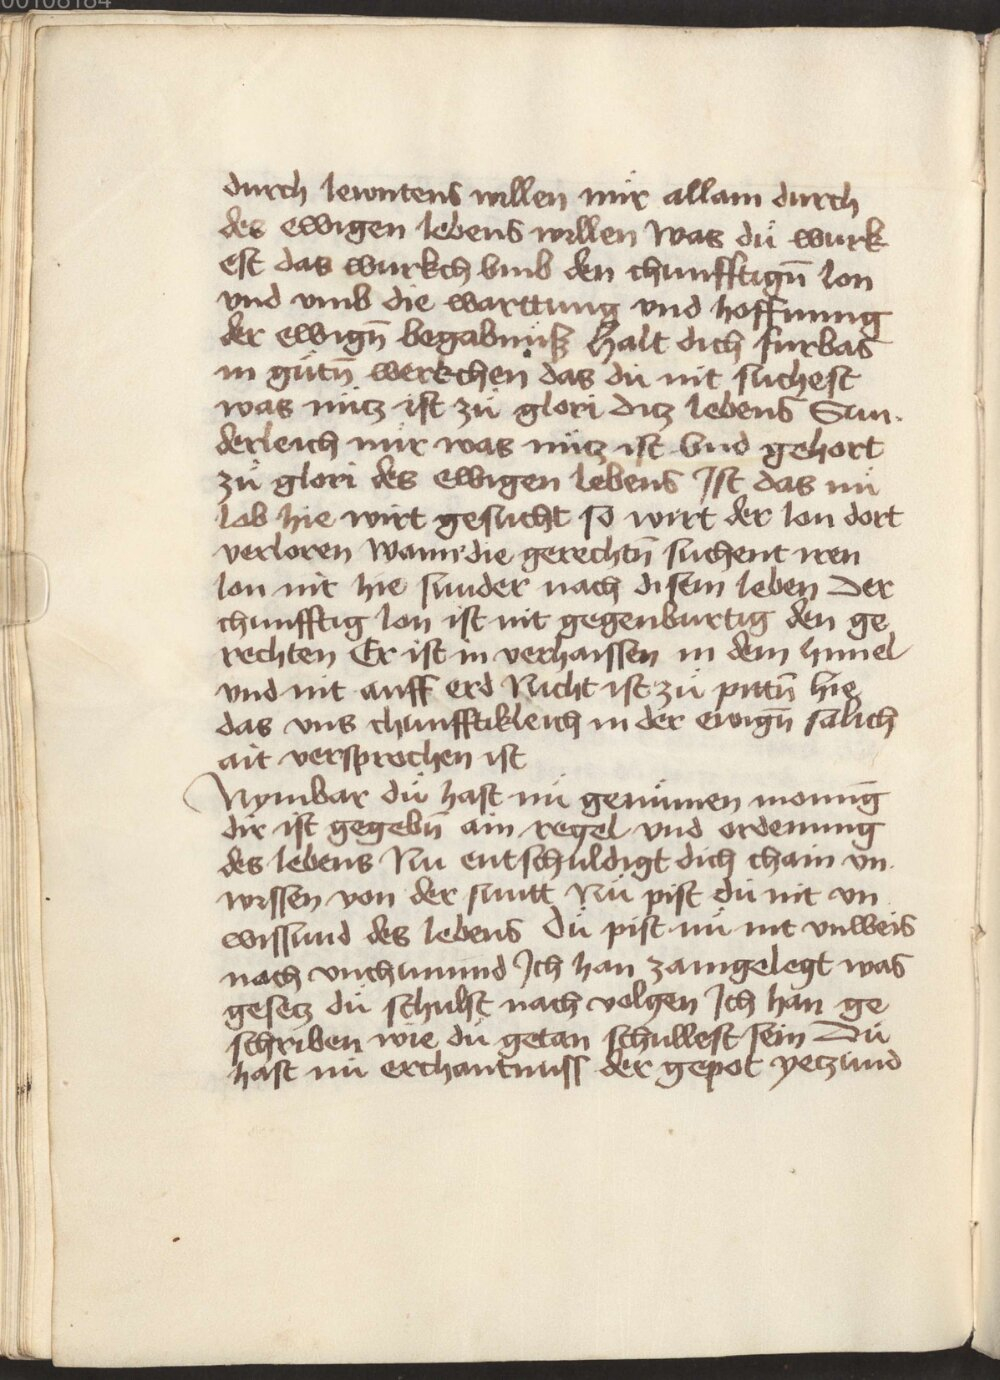 00108184
durch lewntens willen nuͤr allain durch
des ewigen lebens willen Was duͤ wurk
est das wurkch vmb den chunfftign̄ lon
vnd vmb die warttung vnd hoffnung
der ewign̄ begabnuͤsz Halt dich furbas
in guͤtn̄ werkchen das du nit suchest
was nuͤtz ist zuͤ glori ditz lebens Sun.
derleich nuͤr was nuͤtz ist vnd gehort
zuͤ glori des ewigen lebens Ist das nuͤ
lob hie wirt gesucht so wirt der lon dort
verloren Wann die gerechtn̄ suchent iren
lon nit hie sunder nach disem leben Der
chunfftig lon ist nit gegenburtig den ge
rechten Er ist in verhaissen in dem himel
vnd nit auff erd Nicht ist zuͤ pittn̄ hie
das vns chunfftikleich in der ewign̄ sälich
ait versprochen ist
Nymbar duͤ hast nuͤ genuͤmen monung
dir ist gegebn̄ ain regel vnd ordenung
des lebens Nu entschuldigt dich chain vn.
wissen von der sunt Nuͤ pist duͤ nit vn
wissund des lebens Duͤ pist nuͤ nit vnweis
noch vnchunund Ich han zamgelegt was
gesetz duͤ schulst nach volgen Ich han ge
schriben wie duͤ getan schullest sein Duͤ
hast nuͤ erchantnuss der gepot yetzund